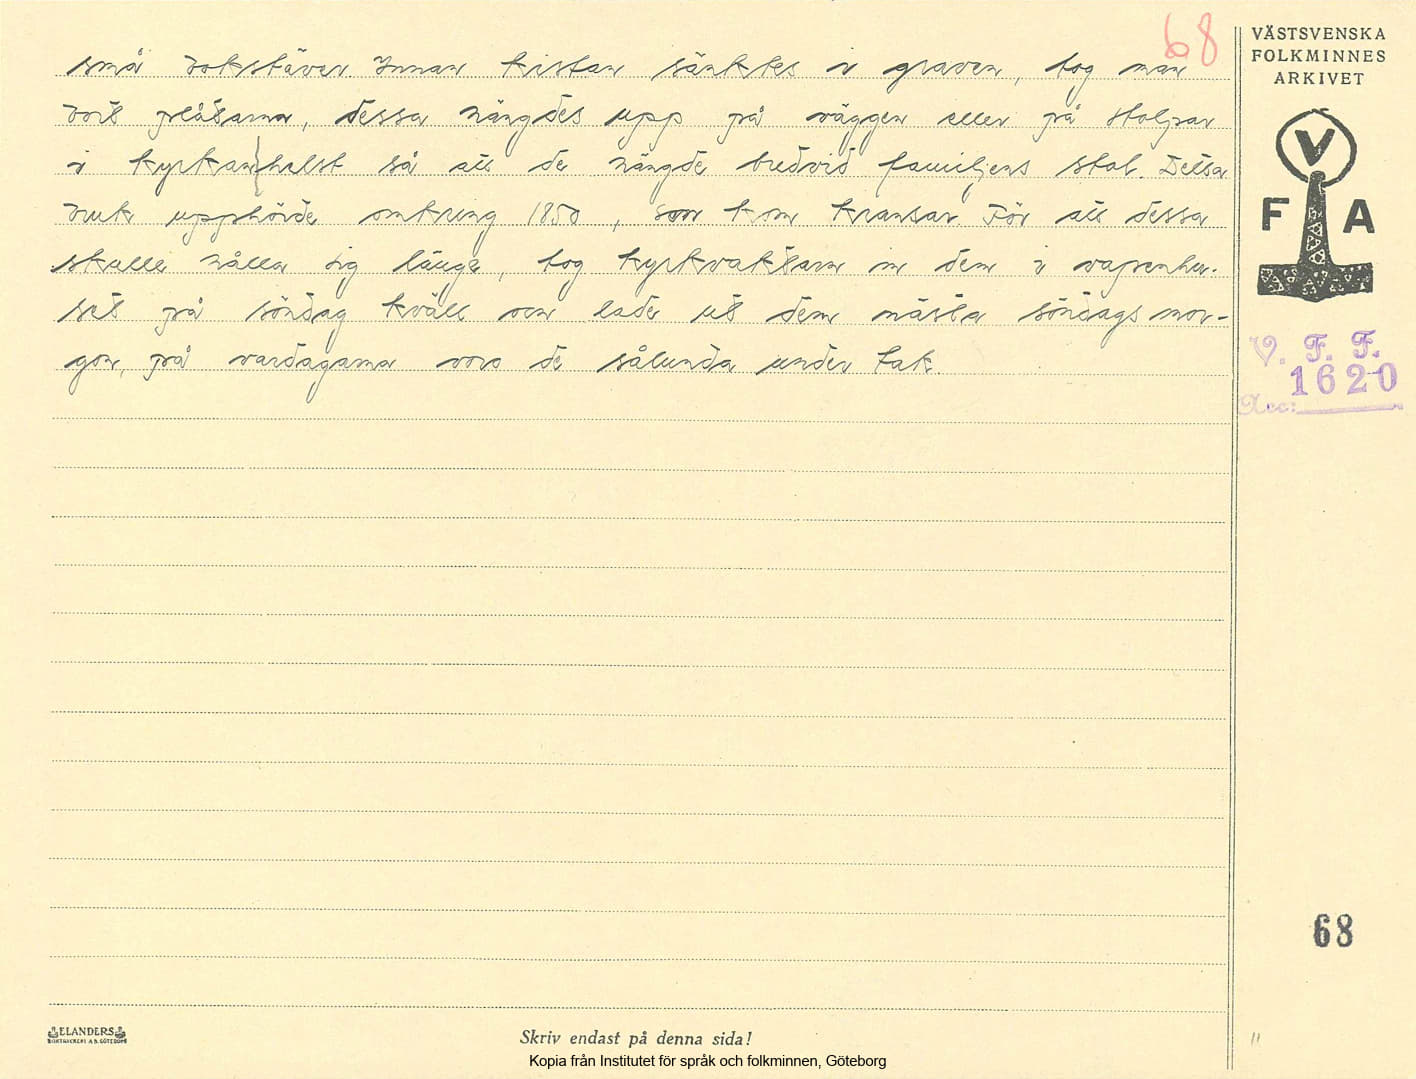 68
VÄSTSVENSKA
FOLKMINNES
ARKIVET
små bokstäver. Innan kistan sänktes i graven, tog man
bort plåtarna, dessa hängdes upp på väggen eller på stolpar
i kyrkan helst så att de hängde bredvid familjens stol. Detta
bruk upphörde omkring 1850, som kom kransar. För att dessa
skulle hålla sig länge, tog kyrkvaktaren in dem i vapenhu-
set på söndag kväll och lade ut dem nästa söndags mor-
gon, på vardagarna voro de sålunda under tak.
V
F A
V. F. F.
1620
Acc:
68
ELANDERS
BOKTRYCKERI A.B. GÖTEBORG
Skriv endast på denna sida!
Kopia från Institutet för språk och folkminnen, Göteborg
11